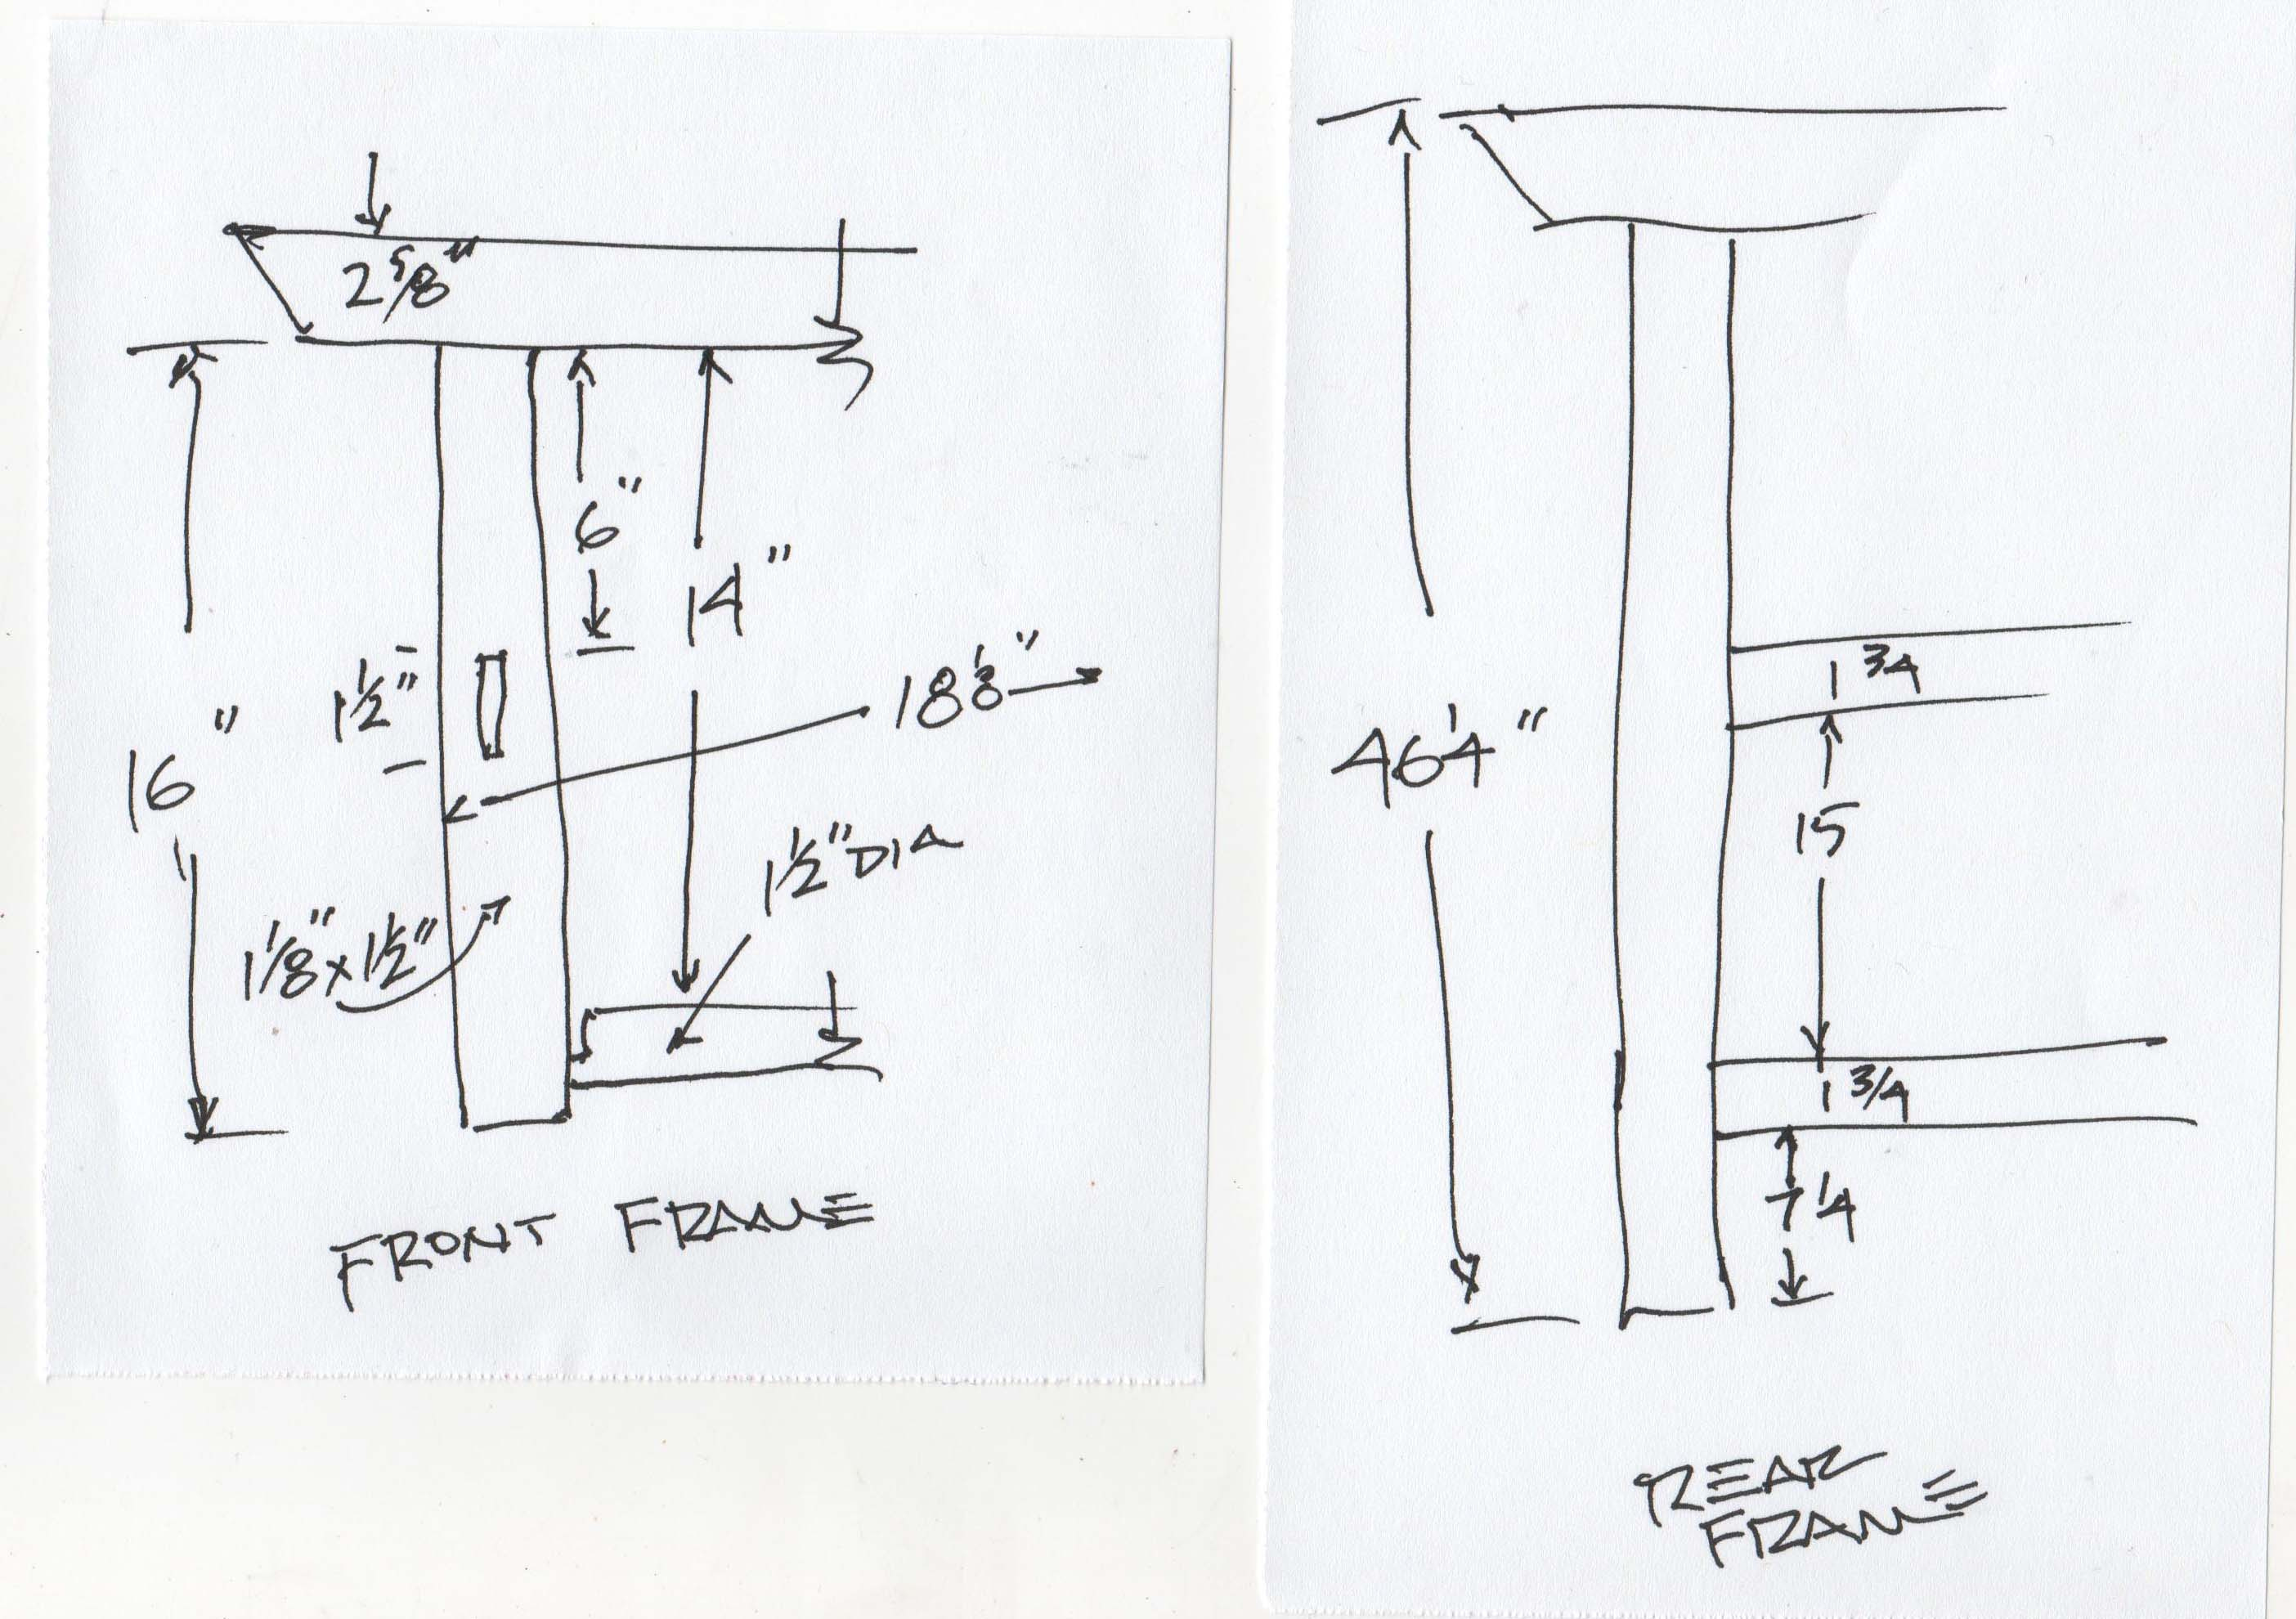 2 5/8"
6"
14"
1 1/2"
18 1/8"
16"
1 1/2" DIA
1 1/8" x 1 1/2"
FRONT FRAME
1 3/4
46 1/4"
15
1 3/4
7 1/4
REAR
FRAME